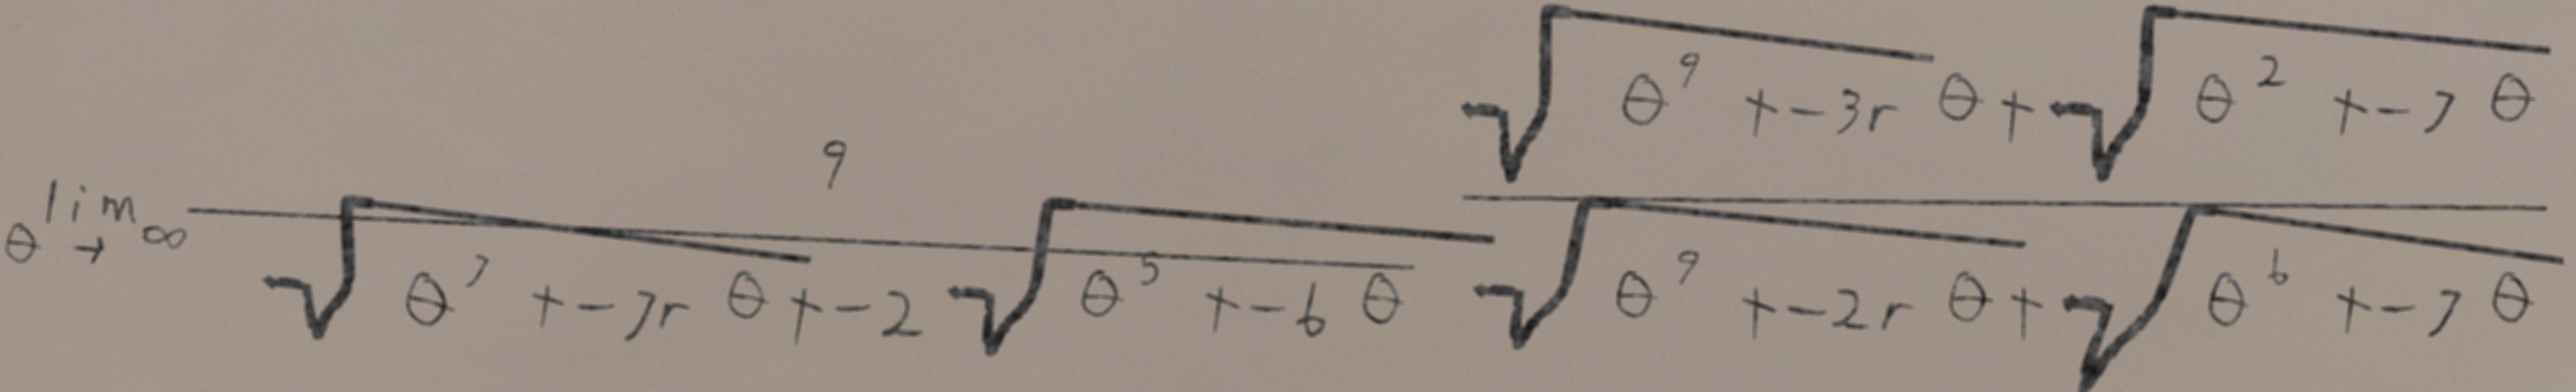 \lim_{\theta \to \infty} \frac{9}{\sqrt{\theta^7 + -7r\theta} + -2\sqrt{\theta^5 + -6\theta}} \frac{\sqrt{\theta^9 + -3r\theta} + \sqrt{\theta^2 + -7\theta}}{\sqrt{\theta^9 + -2r\theta} + \sqrt{\theta^6 + -7\theta}}